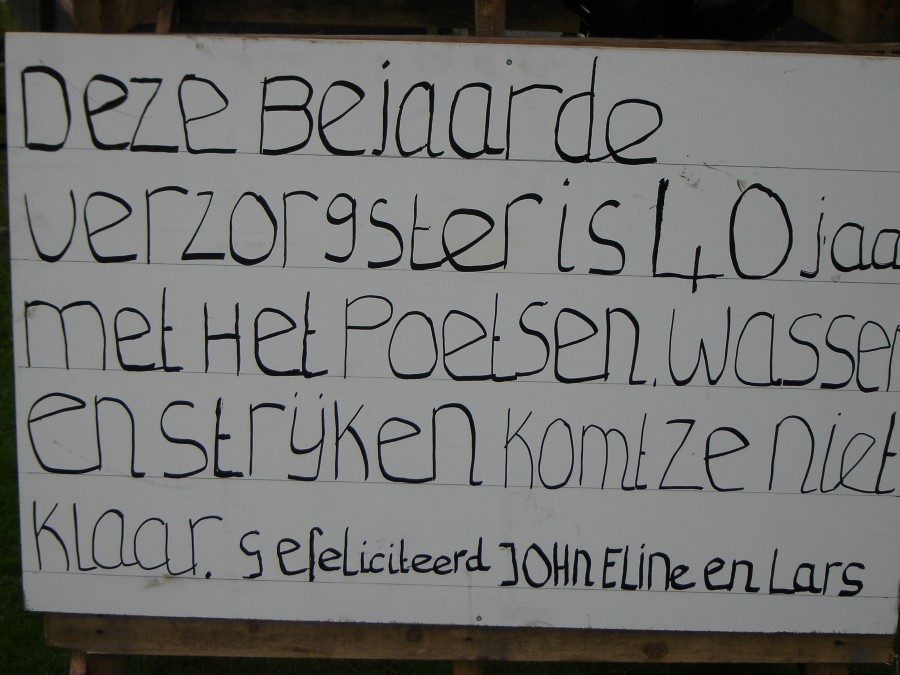 Deze Bejaarde
verzorgster is 40 jaa
met Het Poetsen. Wassen
en strijken komt ze niet
klaar. gefeliciteerd JOHN ELINe en Lars